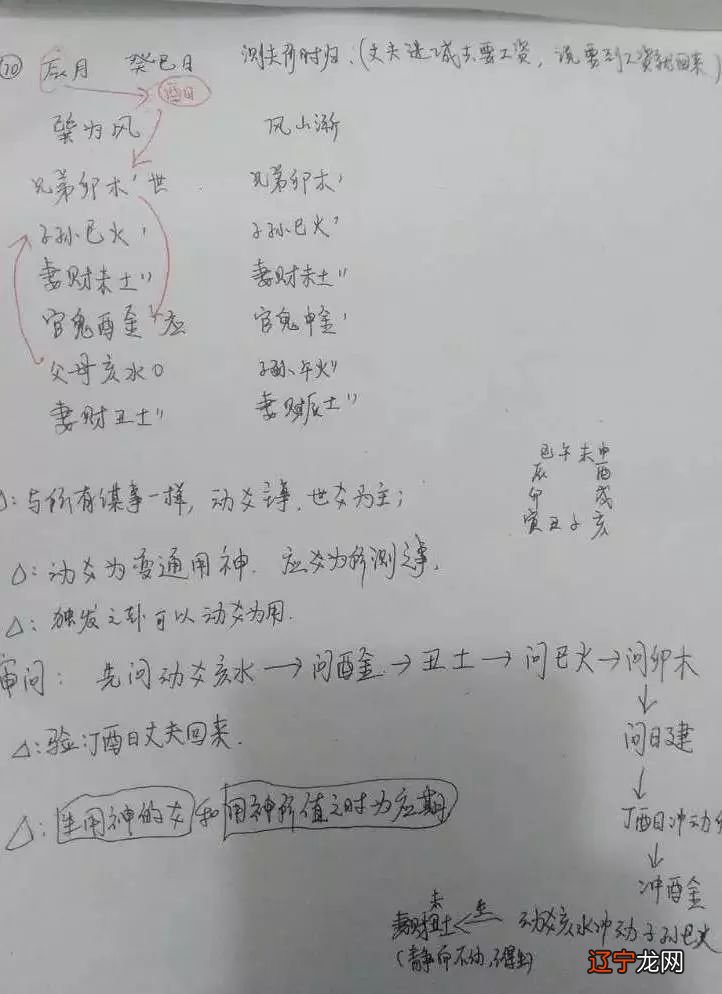 ⑩ 辰月 癸巳日 测夫何时归.(丈夫进城去要工资, 说要到工资就回来)
酉日
巽为风 风山渐
兄弟卯木' 世 兄弟卯木'
子孙巳火' 子孙巳火'
妻财未土" 妻财未土"
官鬼酉金' 应 官鬼申金'
父母亥水〇 子孙午火"
妻财丑土" 妻财辰土"
巳午未申
辰 酉
卯 戌
寅丑子亥
△: 与所有谋事一样, 动爻主事, 世爻为主;
△: 动爻为变通用神. 应爻为所测之事.
△: 独发之卦可以动爻为用.
审问: 先问动爻亥水→问酉金→丑土→问巳火→问卯木
↓
问日建
△: 验:丁酉日丈夫回来.
↓
丁酉日冲动
△: 生用神的爻和用神所值之时为应期
↓
冲酉金
未
妻财丑土 ← 生 动爻亥水冲动子孙巳火
(静而不动,)
辽宁龙网